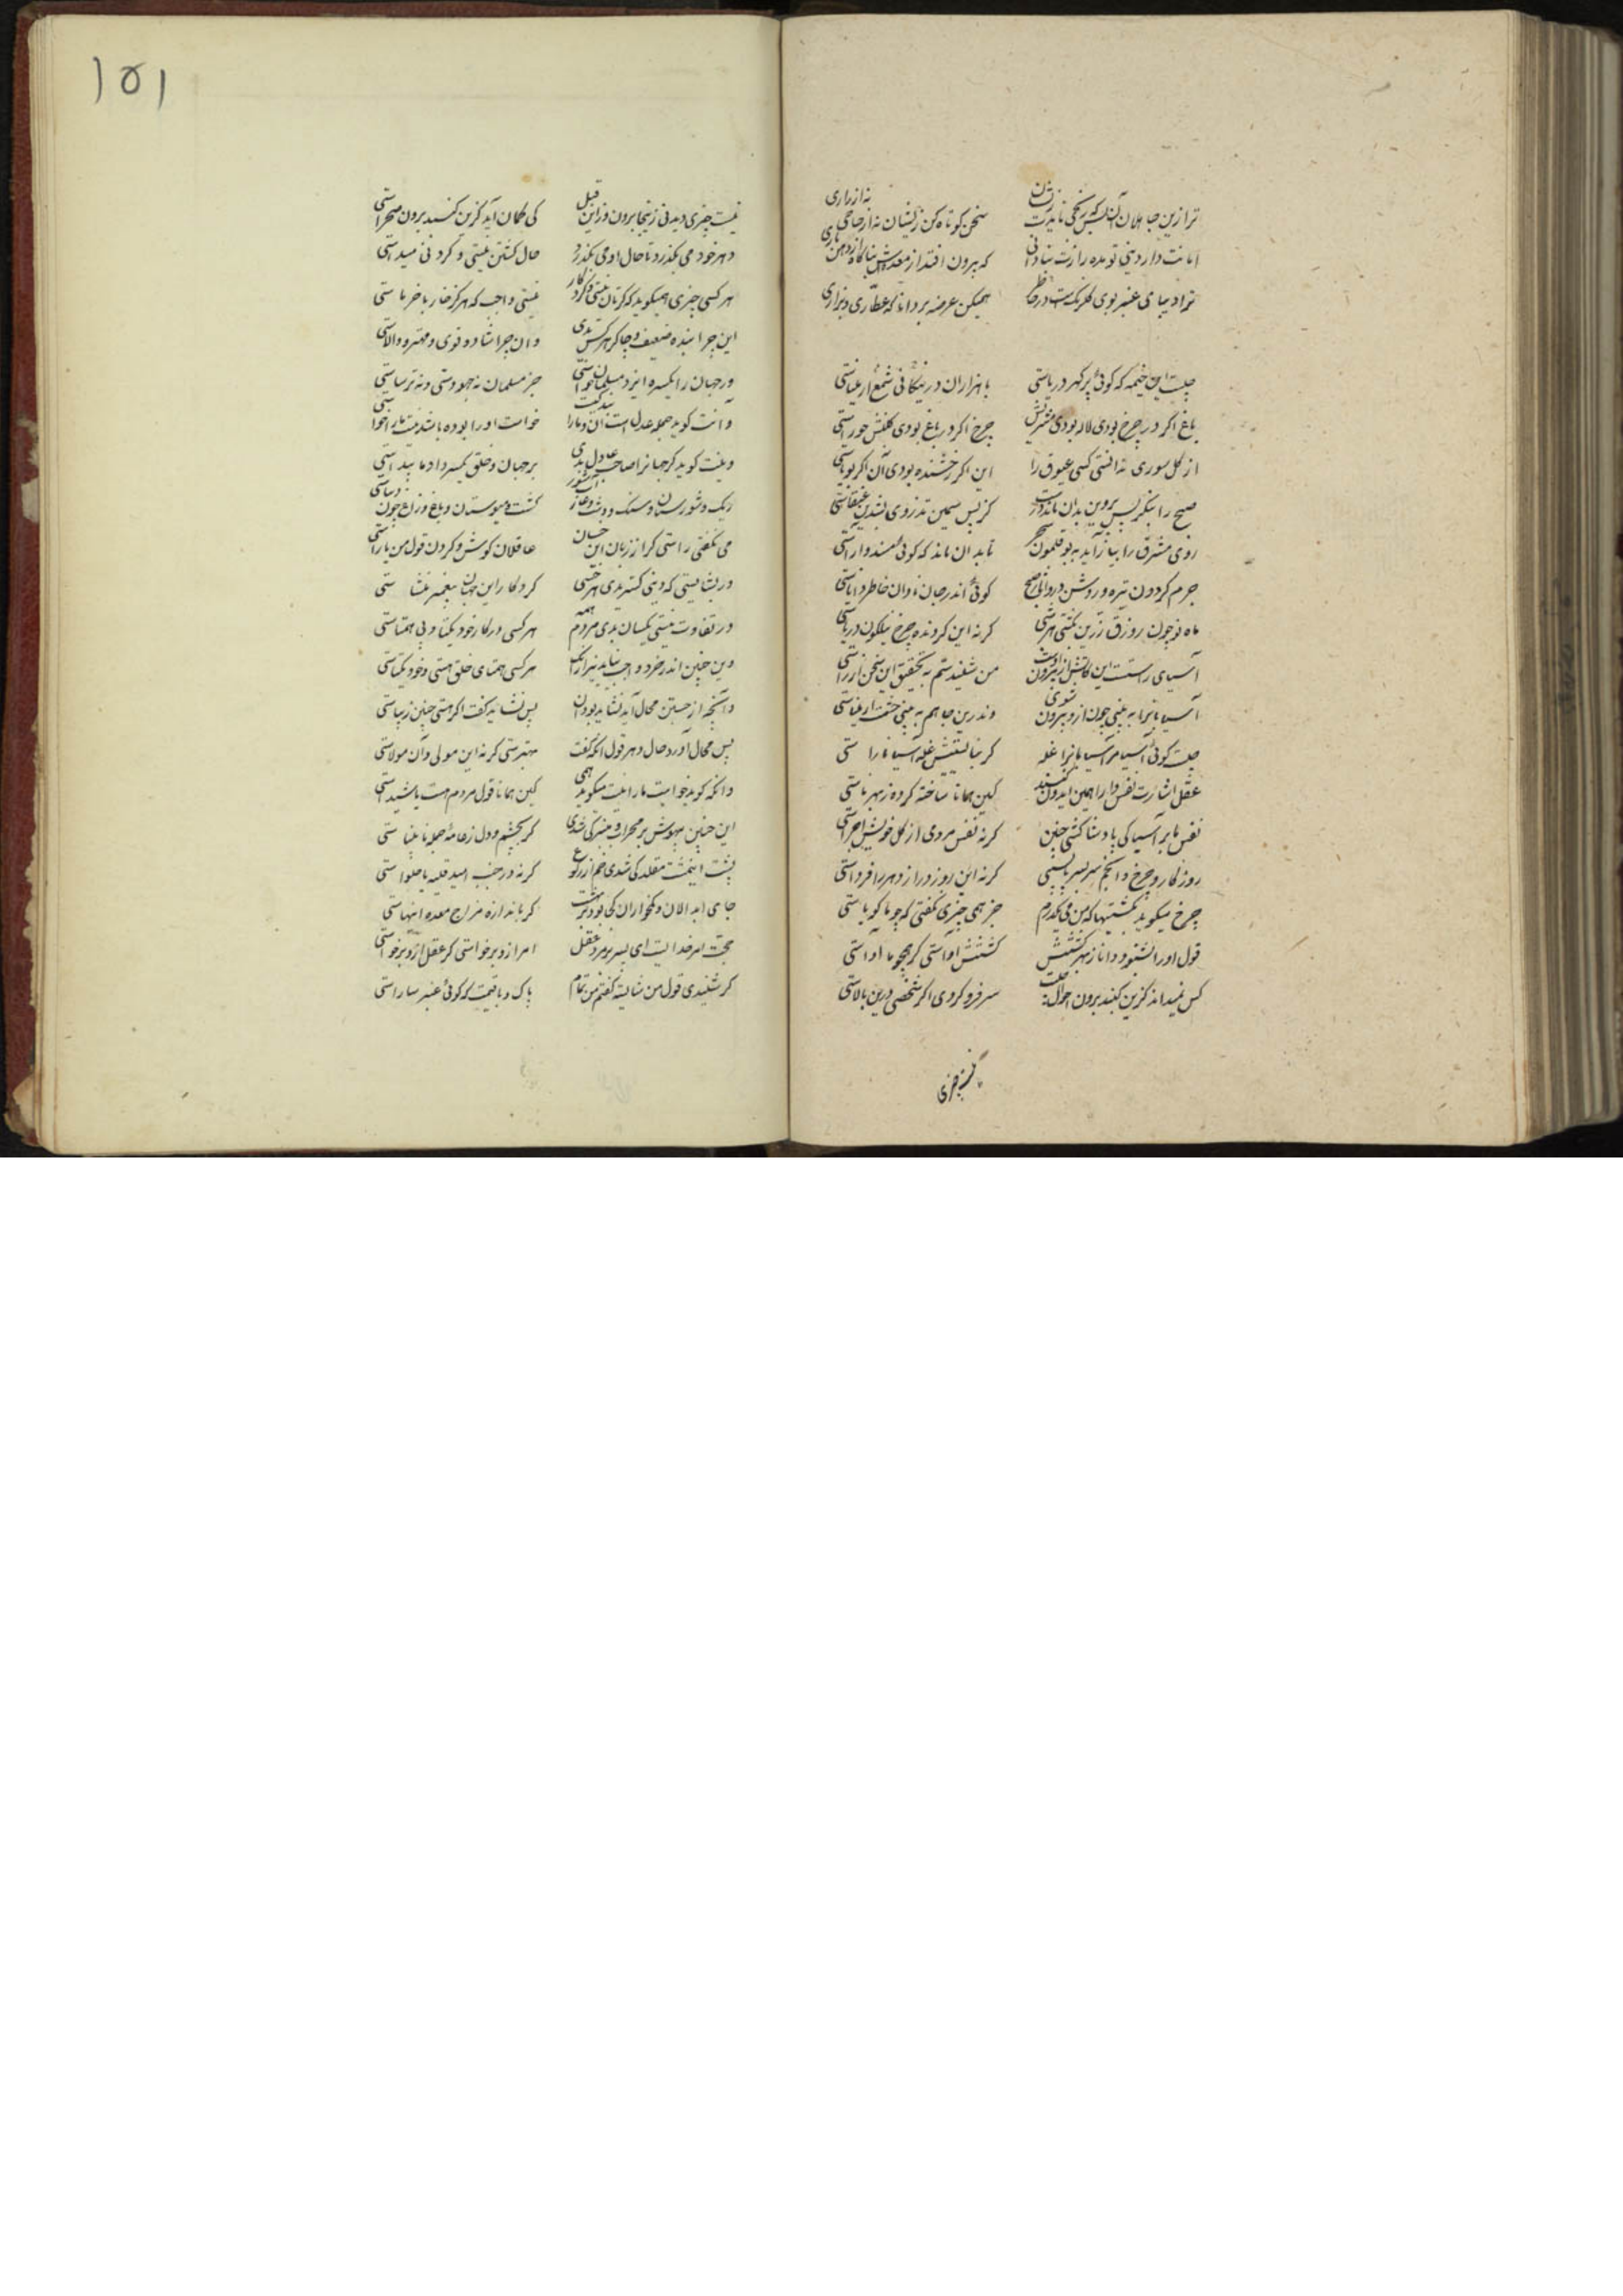 ترا زین جاهلان آن بس که رنجی ناید زیشان سخن کوتاه کن زیشان نه از جاجی نه از راری
امانت دار دینی تو مده رازت بنادانی که بیرون افتد از معده اش بناگاه از دهن
ترا دیبای عنبر بوی گلرنگ است در خاطر همیکن عرضه بر دانا که عطاری و بزازی
چیست این خیمه که گوئی پر گهر دریاستی یا هزاران شمع در پنگانی از میناستی
باغ اگر در چرخ بودی لاله بودی مشتریش چرخ اگر در باغ بودی گلبنش جوزاستی
از گل سوری ندانستی کسی عیوق را این اگر رخشنده بودی آن اگر بویاستی
صبح را بنگر پس پروین بدان ماند درست کز پس سیمین تذروی بسدین عنقاستی
روی مشرق را بیاراید به بوقلمون سحر تا بدان ماند که گوئی مسند داراستی
جرم گردون تیره و روشن در و آیات صبح گوئی اندر جان نادان خاطر داناستی
ماه نو چون زورق زرین نگشتی هر شبی گر نه این گردنده چرخ نیلگون دریاستی
آسیای راست است این کابش از بیرون اوست من شنیدستم به تحقیق این سخن از راستی
آسیابانرا به بینی چون ازو بیرون شوی وندرین جا هم به بینی چشمت ار بیناستی
چیست گوئی آسیا مر آسیابانرا غله گر نبایستیش غله آسیا ناراستی
عقل اشارت نفس دانا را همی ایدون کند کین همانا ساخته کرده ز بهر ماستی
نفس ما بر آسیا کی پادشا گشتی چنین گر نه نفس مردمی از کل خویش اجزاستی
روزگار و چرخ و انجم سر بسر بازیستی گر نه این روز دراز دهر را فرداستی
چرخ میگوید بگشتنها که من می بگذرم جز همی چیزی نگفتی گر چو ما گویاستی
قول او را نشنود دانا ز بهر گشتنش گشتنش آواستی گر همچو ما آواستی
کس نمیداند کزین گنبد برون احوال چیست سر فرو کردی اگر شخصی درین بالاستی
نیست چیزی
۱۵۱
نیست چیزی دیدنی زینجا برون و زاین قبل کی گمان آید کزین گنبد برون صحراستی
دهر خود می بگذرد تا حال او می بگذرد حال گشتن نیستی و کرد نی مبداستی
هر کسی چیزی همیگوید
این چرا بنده ضعیف و چاکر هر کس بدی وان چرا شاد و قوی و مهتر و والاستی
ور جهان را یکسره ایزد مسلمان خواستی جز مسلمان نه جهودستی و نه ترساستی
وآنت گوید جمله عدل است آن و ما را بندگیست خواست او را بوده باشد نیست ما را خواستی
وینت گوید گر جهانرا صانعی عادل بدی بر جهان و خلق یکسر داد ما پیداستی
ریگ و شورستان و سنگ و دشت و غار و آب شور کشت و میوستان و باغ و راغ چون دیباستی
می نگفتی راستی کز از زبان این خسان عاقلان گوش و گردون قول من یاراستی
ور بشایستی که دینی گستریدی هر خسی کردگار این جهان پیغمبر نفرستاستی
در تفاوت نیستی یکسان بدی مردم همه هر کسی در کار خود یکتا و بی همتاستی
وین چنین اندر خرد واجب نیاید نیز ازانک هر کسی همتای خلقستی و خود یکتاستی
وآنچه از جستن محال آید نشاید بودن آن پس نشاید گفت اگر هستی چنین زیباستی
پس محال آورد حال دهر قول آنکه گفت مهترستی گر نه این مولی و آن مولاستی
وانکه گوید خواست ما را نیست میگوید همی کین همانا قول مردم مست یا شیداستی
این چنین بیهوش بر محراب و منبر کی شدی گر بچشم و دل نه عامه جمله نابیناستی
پشت اینمشت مقلد کی شدی خم از رکوع گر نه در جنت امید قلیه یا حلواستی
جای
حجت مر خدایست ای پسر بر مرد عقل امر ازو برخواستی گر عقل ازو برخواستی
گر شنیدی قول من شایسته گفتم من تمام پاک و با قیمت که گوئی عنبر ساراستی